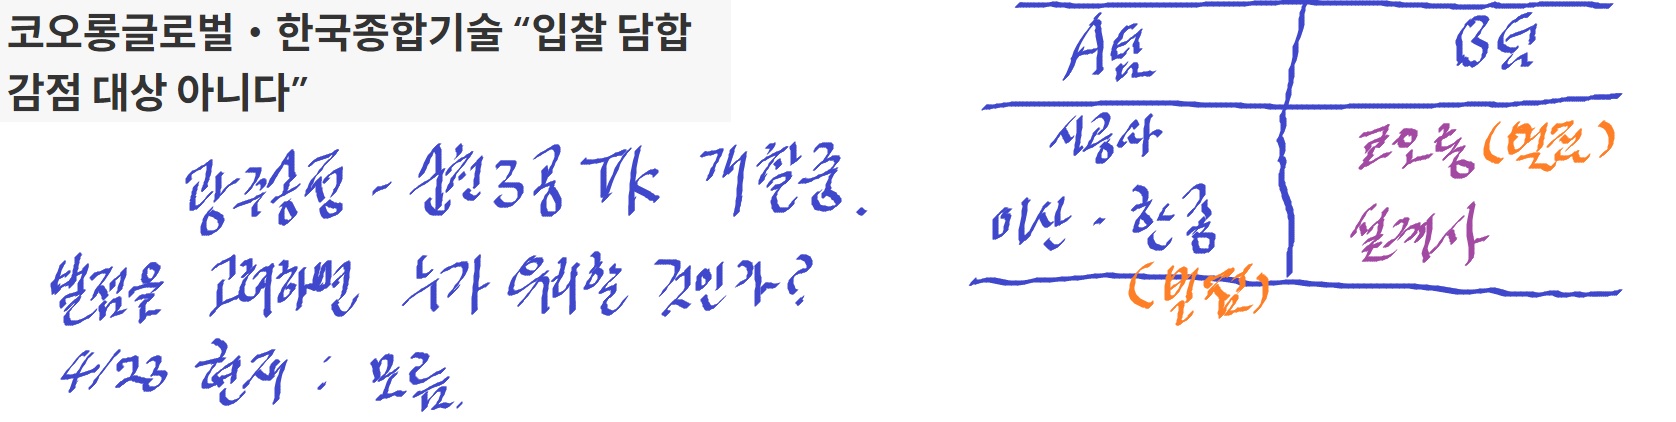 코오롱글로벌·한국종합기술 “입찰 담합
감점 대상 아니다”
광주송정 - 순천 3공 TK 개찰중.
벌점을 고려하면 누가 유리할 것인가?
4/23 현재 : 모름.
A팀 B팀
시공사 코오롱 (벌점)
미산 · 한종 설계사
(벌점)